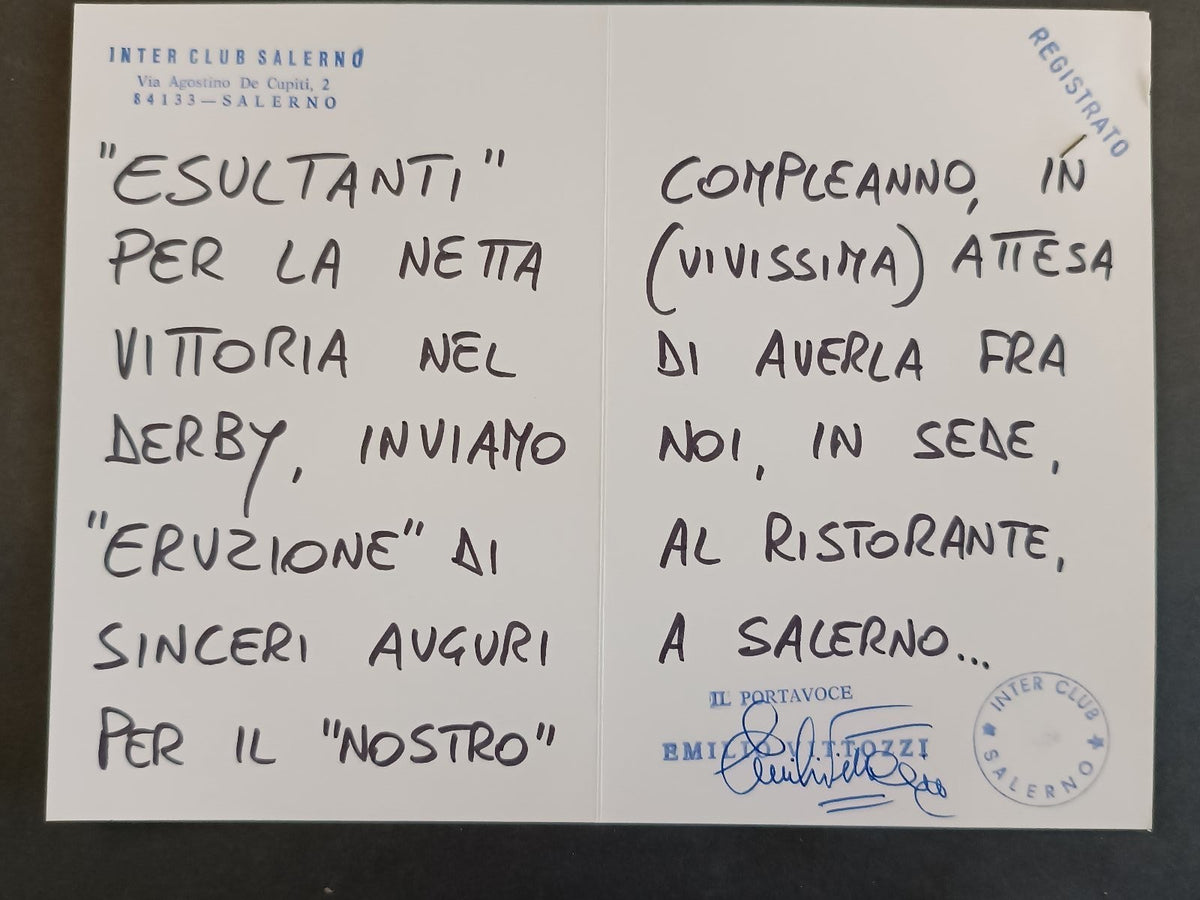 INTER CLUB SALERNO
Via Agostino De Cupiti, 2
84133—SALERNO
"ESULTANTI"
PER LA NETTA
VITTORIA NEL
DERBY, INVIAMO
"ERUZIONE" DI
SINCERI AUGURI
PER IL "NOSTRO"
REGISTRATO
COMPLEANNO, IN
(VIVISSIMA) ATTESA
DI AVERLA FRA
NOI, IN SEDE,
AL RISTORANTE,
A SALERNO...
IL PORTAVOCE
EMILIO VITTOZZI
INTER CLUB
SALERNO